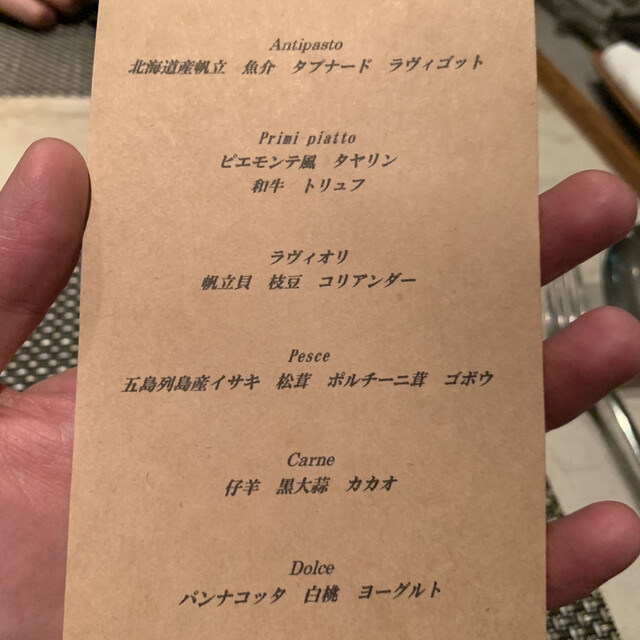 Antipasto
北海道産帆立 魚介 タプナード ラヴィゴット
Primi piatto
ピエモンテ風 タヤリン
和牛 トリュフ
ラヴィオリ
帆立貝 枝豆 コリアンダー
Pesce
五島列島産イサキ 松茸 ポルチーニ茸 ゴボウ
Carne
仔羊 黒大蒜 カカオ
Dolce
パンナコッタ 白桃 ヨーグルト